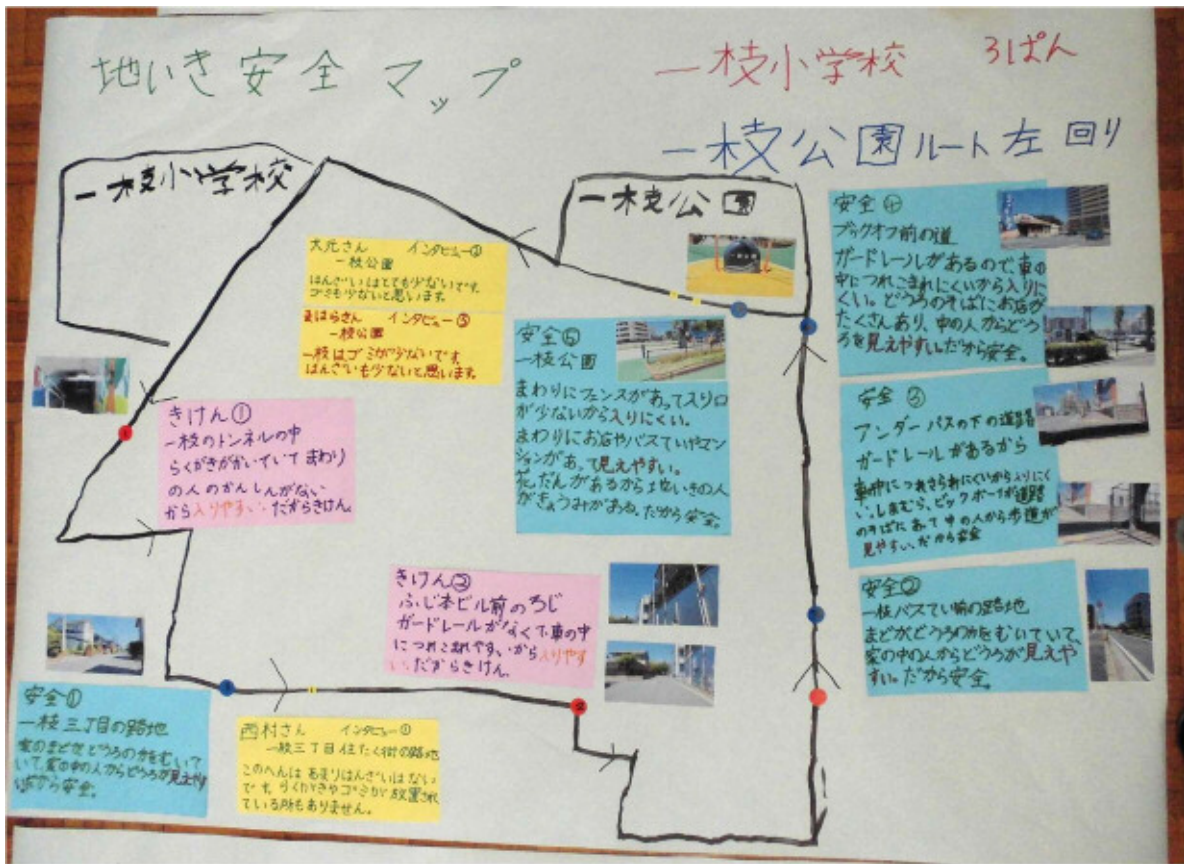 地いき安全マップ
一枝小学校 3ぱん
一枝公園ルート左回り
一枝小学校
一枝公園
大元さん インタビュー②
一枝公園
はんざいはとても少ないです。
ゴミも少ないと思います。
はらさん インタビュー③
一枝公園
一枝はゴミが少ないです。
はんざいも少ないと思います。
きけん①
一枝のトンネルの中
らくがきがかいていてまわり
の人のかんしんがない
から入りやすい。だからきけん。
安全⑤
一枝公園
まわりにフェンスがあって入り口
が少ないから入りにくい。
まわりにお店やバスていやマン
ションがあって見えやすい。
花だんがあるから地いきの人
がきょうみがある。だから安全。
安全④
ブックオフ前の道
ガードレールがあるので、車の
中につれこまれにくいから入りに
くい。どうろのそばにお店が
たくさんあり、中の人からどう
ろを見えやすい。だから安全。
安全③
アンダーパスの下の道路
ガードレールがあるから
車の中につれさられにくいから入りにく
い。しまむら、ビックボーイが道路
のそばにあって中の人から歩道が
見やすい。だから安全
安全②
一枝バスてい前の路地
まどがどうろのほうをむいていて、
家の中の人からどうろが見えや
すい。だから安全。
きけん②
ふじ本ビル前のろじ
ガードレールがなくて、車の中
につれこまれやすいから入りやす
い。だからきけん。
安全①
一枝三丁目の路地
家のまどがどうろのほうをむいて
いて、家の中の人からどうろが見えやす
いから安全。
西村さん インタビュー①
一枝三丁目住たく街の路地
このへんはあまりはんざいはない
です。らくがきやゴミが放置され
ている所もありません。